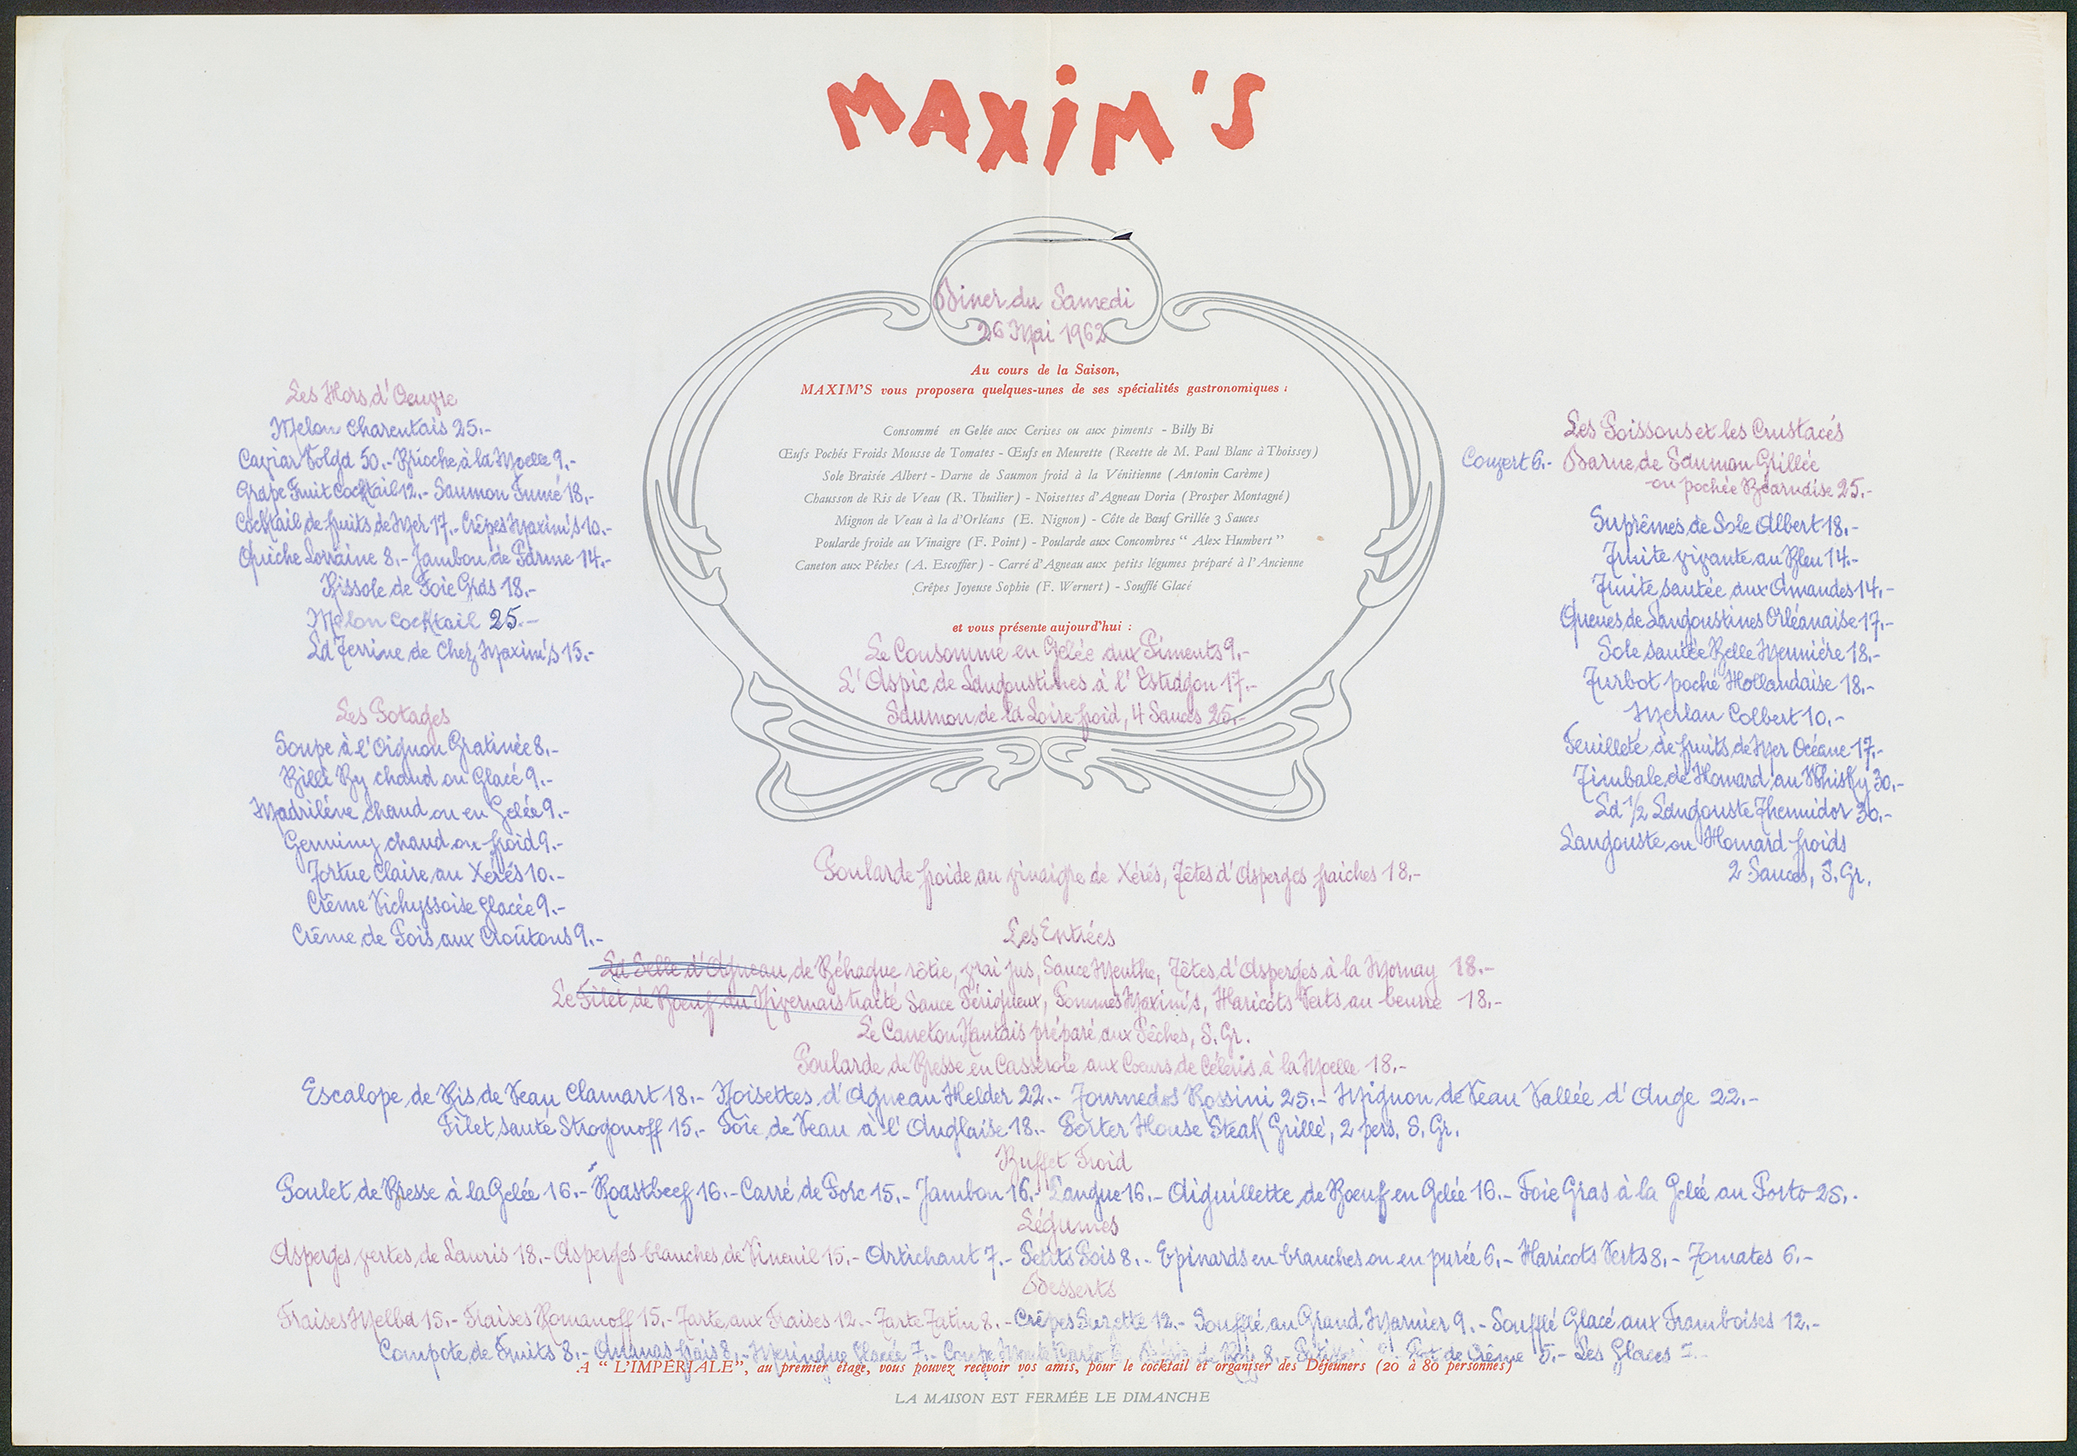 MAXIM'S
Diner du Samedi
26 Mai 1962
Au cours de la Saison,
MAXIM'S vous proposera quelques-unes de ses spécialités gastronomiques :
Consommé en Gelée aux Cerises ou aux piments - Billy Bi
Œufs Pochés Froids Mousse de Tomates - Œufs en Meurette (Recette de M. Paul Blanc à Thoissey)
Sole Braisée Albert - Darne de Saumon froid à la Vénitienne (Antonin Carème)
Chausson de Ris de Veau (R. Thuilier) - Noisettes d'Agneau Doria (Prosper Montagné)
Mignon de Veau à la d'Orléans (E. Nignon) - Côte de Bœuf Grillée 3 Sauces
Poularde froide au Vinaigre (F. Point) - Poularde aux Concombres “ Alex Humbert ”
Caneton aux Pêches (A. Escoffier) - Carré d'Agneau aux petits légumes préparé à l'Ancienne
Crêpes Joyeuse Sophie (F. Wernert) - Soufflé Glacé
et vous présente aujourd'hui :
Le Consommé en Gelée aux Piments 9.-
L'Aspic de Langoustines à l'Estragon 17.-
Saumon de la Loire froid, 4 Sauces 25.-
Les Hors d'Oeuvre
Melon Charentais 25.-
Caviar Volga 50.- Brioche à la Moelle 9.-
Grape Fruit Cocktail 12.- Saumon Fumé 18.-
Cocktail de fruits de Mer 17.- Crêpes Maxim's 10.-
Quiche Lorraine 8.- Jambon de Parme 14.-
Rissole de Foie Gras 18.-
Melon Cocktail 25.-
La Terrine de Chez Maxim's 15.-
Les Potages
Soupe à l'Oignon Gratinée 8.-
Billi By chaud ou Glacé 9.-
Madrilève chaud ou en Gelée 9.-
Germiny chaud ou froid 9.-
Tortue Claire au Xérés 10.-
Crème Vichyssoise glacée 9.-
Crème de Pois aux Croûtons 9.-
Les Poissons et les Crustacés
Couvert 6.- Darne de Saumon Grillée
ou pochée Béarnaise 25.-
Suprêmes de Sole Albert 18.-
Truite vivante au Bleu 14.-
Truite sautée aux Amandes 14.-
Queues de Langoustines Orléanaise 17.-
Sole sautée Belle Meunière 18.-
Turbot poché Hollandaise 18.-
Merlan Colbert 10.-
Feuilleté de fruits de Mer Océane 17.-
Timbale de Homard au Whisky 30.-
La ½ Langouste Thermidor 30.-
Langouste ou Homard froids
2 Sauces, S. Gr.
Poularde froide au vinaigre de Xérés, Têtes d'Asperges fraiches 18.-
Les Entrées
La Selle d'Agneau de Béhague rôtie, vrai jus, Sauce Menthe, Têtes d'Asperges à la Mornay 18.-
Le Filet de Boeuf du Nivernais traité Sauce Périgueux, Pommes Maxim's, Haricots Verts au beurre 18.-
Le Caneton Nantais préparé aux Pêches, S. Gr.
Poularde de Bresse en Casserole aux Coeurs de Céleris à la Moelle 18.-
Escalope de Ris de Veau Clamart 18.- Noisettes d'Agneau Helder 22.- Tournedos Rossini 25.- Mignon de Veau Vallée d'Auge 22.-
Filet sauté Strogonoff 15.- Foie de Veau à l'Anglaise 18.- Porter House Steak Grillé, 2 pers. S. Gr.
Buffet Froid
Poulet de Bresse à la Gelée 16.- Roastbeef 16.- Carré de Porc 15.- Jambon 16.- Langue 16.- Aiguillette de Boeuf en Gelée 16.- Foie Gras à la Gelée au Porto 25.-
Légumes
Asperges vertes de Lauris 18.- Asperges blanches de Vineuil 15.- Artichaut 7.- Petits Pois 8.- Epinards en branches ou en purée 6.- Haricots Verts 8.- Tomates 6.-
Desserts
Fraises Melba 15.- Fraises Romanoff 15.- Tarte aux Fraises 12.- Tarte Tatin 8.- Crêpes Suzette 12.- Soufflé au Grand Marnier 9.- Soufflé Glacé aux Framboises 12.-
Compote de Fruits 8.- Ananas frais 8.- Meringue glacée 7.- Coupe Monte Carlo 8.- Pot de Crème 5.- Les Glaces
A “ L'IMPERIALE ”, au premier étage, vous pouvez recevoir vos amis, pour le cocktail et organiser des Déjeuners (20 à 80 personnes)
LA MAISON EST FERMÉE LE DIMANCHE